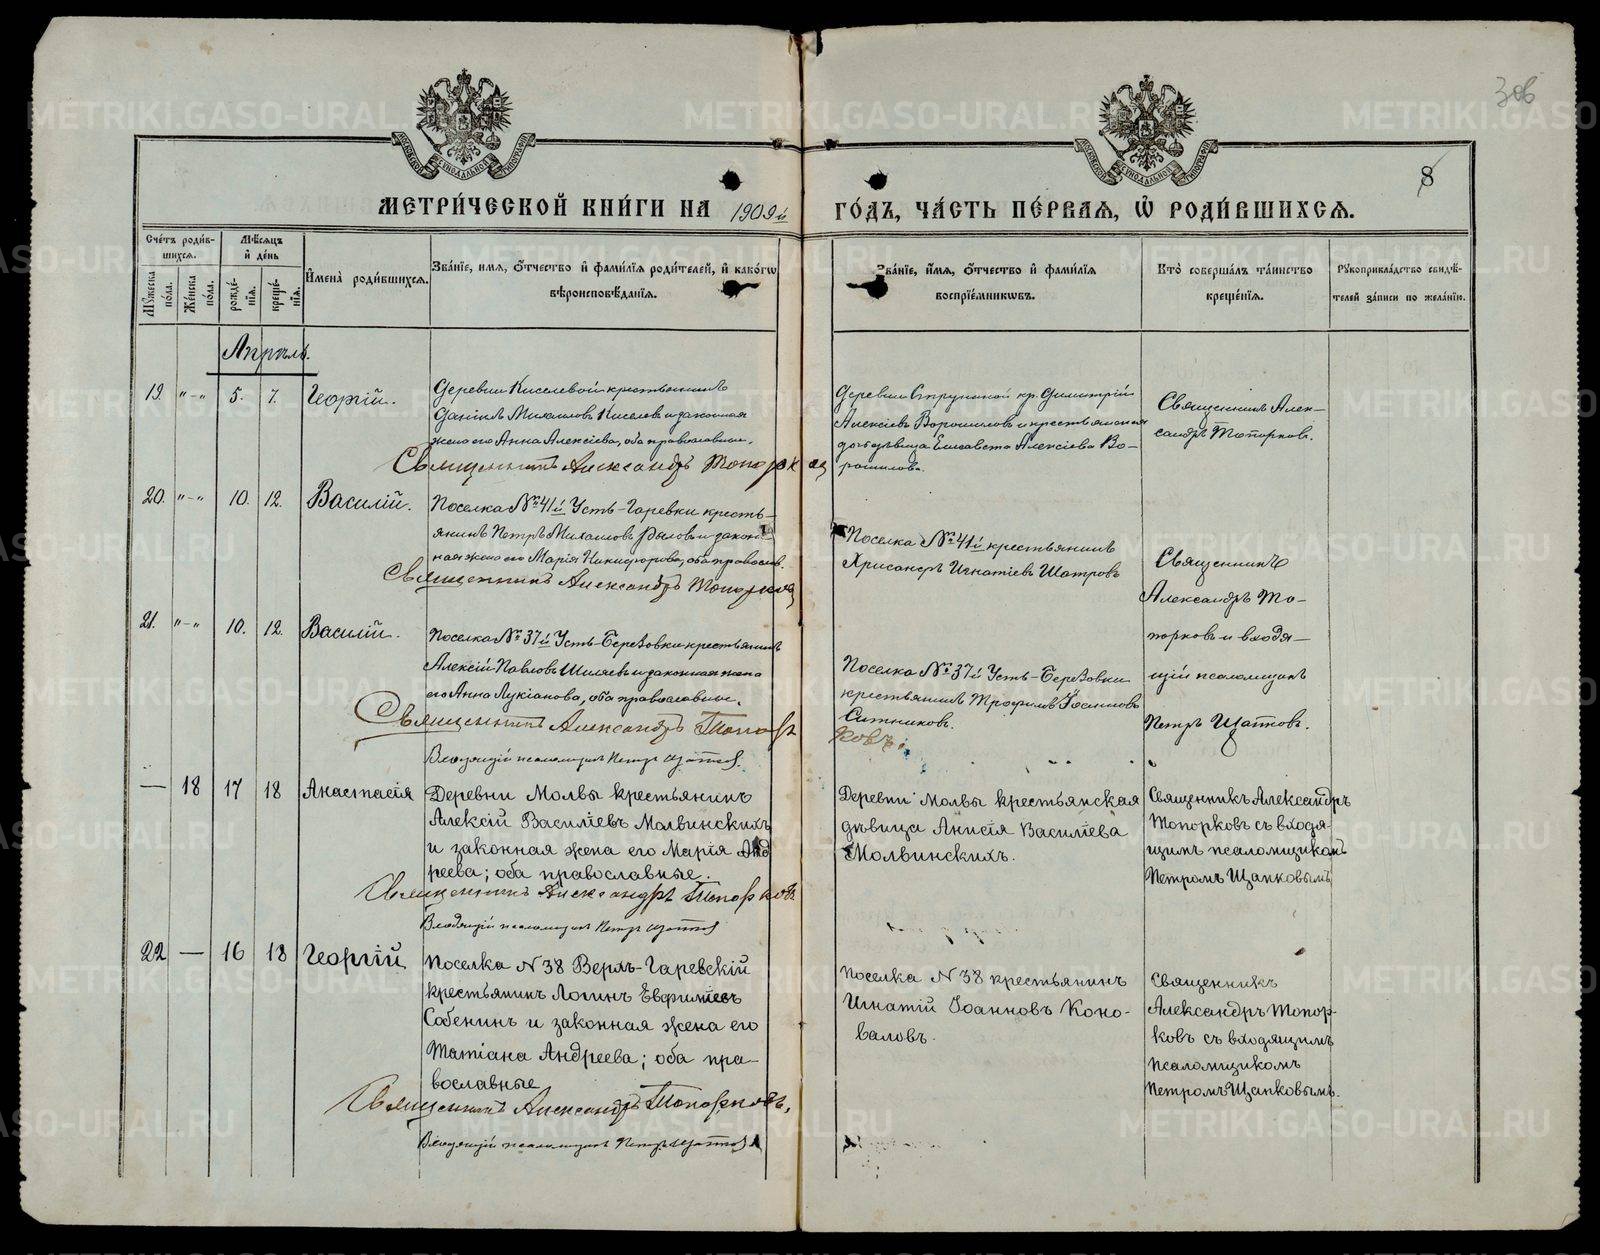 306
8
МОСКОВСКОЙ СѴНОДАЛЬНОЙ ТИПОГРАФІИ
МОСКОВСКОЙ СѴНОДАЛЬНОЙ ТИПОГРАФІИ
МЕТРИ́ЧЕСКОЙ КНИ́ГИ НА 1909й ГО́ДЪ, ЧА́СТЬ ПЕ́РВАѦ, Ѡ РОДИ́ВШИХСѦ.
Сче́тъ роди́в-
шихся.
Мѣ́сяцъ
и҆ де́нь
Мꙋ́жеска
по́ла.
Же́нска
по́ла.
рожде́-
нїѧ.
креще́-
нїѧ.
И҆мена̀ роди́вшихсѧ.
Зва́нїе, и҆мѧ, ѻ҆́тчество и҆ фами́лїѧ роди́телей, и҆ како́гѡ
вѣроисповѣ́данїѧ.
Зва́нїе, и҆́мѧ, ѻ҆́тчество и҆ фами́лїѧ
воспрїе́мникѡвъ.
Кто̀ соверша́лъ та́инство
креще́нїѧ.
Рꙋкоприкла́дство свидѣ́-
телей за́писи по жела́нїю.
Апрѣль.
19. "-" 5. 7. Георгій.
Деревни Киселевой крестьянинъ
Даніилъ Михаиловъ Киселевъ и законная
жена его Анна Алексіева, оба православные.
Священникъ Александръ Топорковъ
Деревни Струниной кр. Димитрій
Алексіевъ Ворошиловъ и крестьянская
дочь дѣвица Елисавета Алексіева Во-
рошилова.
Священникъ Алек-
сандръ Топорковъ.
20. "-" 10. 12. Василій.
Поселка № 41й Усть-Гаревки кресть-
янинъ Петръ Михаиловъ Рыловъ и закон-
ная жена его Марія Никифорова, оба православ.
Священникъ Александръ Топорковъ
Поселка № 41й крестьянинъ
Хрисанфъ Игнатіевъ Шатровъ
Священникъ
Александръ То-
порковъ и входя-
щій псаломщикъ
Петръ Щапковъ.
21. "-" 10. 12. Василій.
Поселка № 37й Усть-Березовки крестьянинъ
Алексій Павловъ Шиляевъ и законная жена
его Анна Лукіанова, оба православные.
Священникъ Александръ Топорковъ.
Входящій псаломщикъ Петръ Щапков
Поселка № 37й Усть-Березовки
крестьянинъ Трофимъ Іоанновъ
Ситниковъ.
— 18 17 18 Анастасія
Деревни Молвы крестьянинъ
Алексій Василіевъ Молвинскихъ
и законная жена его Марія Анд
реева; оба православные.
Священникъ Александръ Топорковъ
Входящій псаломщикъ Петръ Щапков
Деревни Молвы крестьянская
дѣвица Анисія Василіева
Молвинскихъ.
Священникъ Александръ
Топорковъ съ входя-
щимъ псаломщикомъ
Петромъ Щапковымъ
22 — 16 18 Георгій
Поселка N 38 Верхъ-Гаревскій
крестьянинъ Логинъ Евфиміевъ
Собенинъ и законная жена его
Татіана Андреева; оба пра-
вославные
Священникъ Александръ Топорковъ.
Входящій псаломщикъ Петръ Щапков
Поселка N 38 крестьянинъ
Игнатій Іоанновъ Коно-
валовъ.
Священникъ
Александръ Топор-
ковъ съ входящимъ
псаломщикомъ
Петромъ Щапковымъ.
METRIKI.GASO-URAL.RU